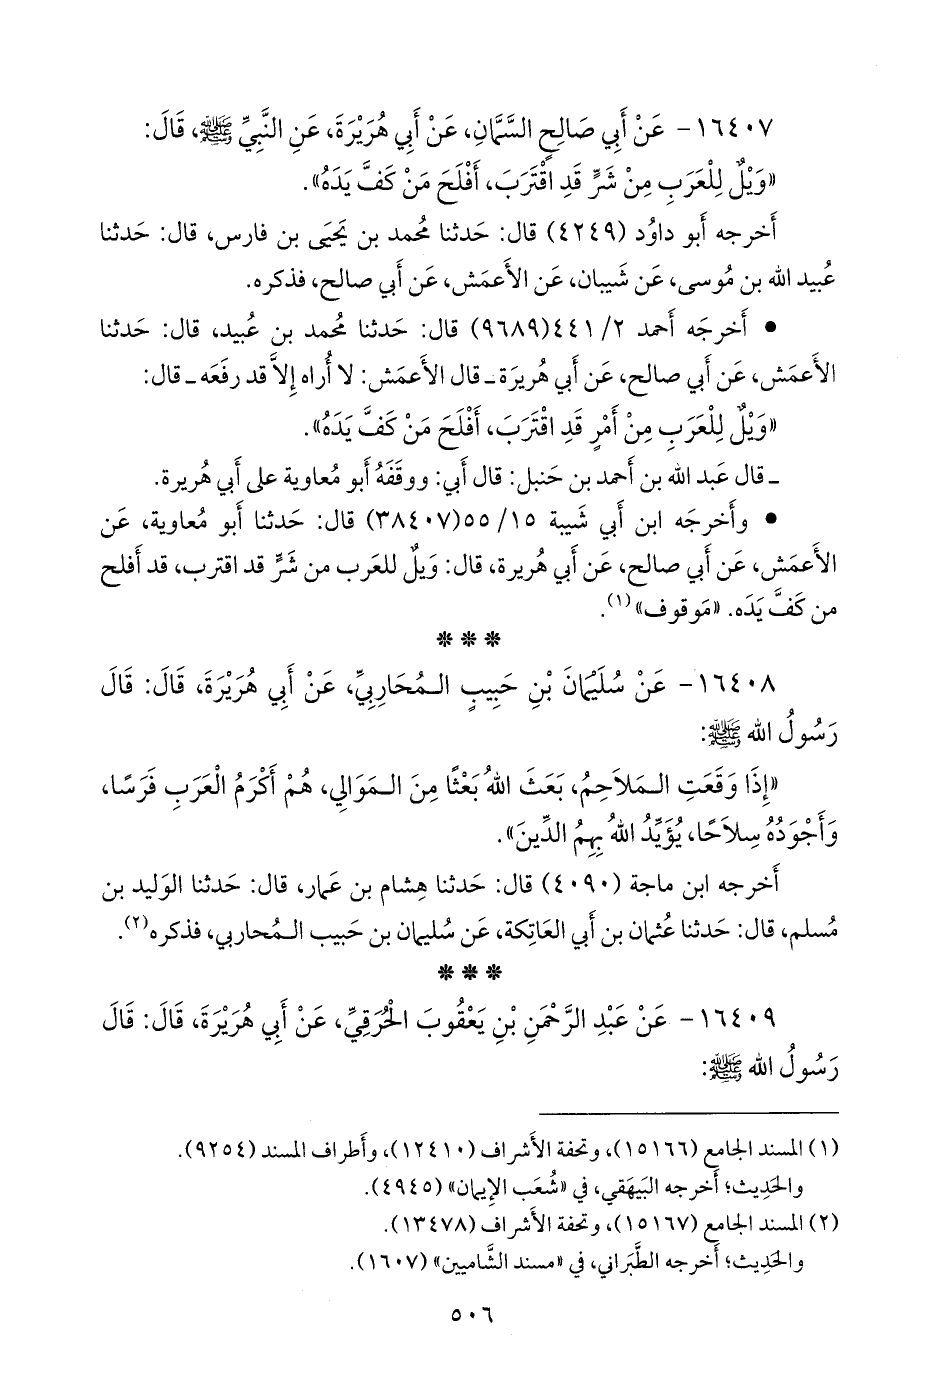 ١٦٤٠٧- عَنْ أَبِي صَالِحٍ السَّمَّانِ، عَنْ أَبِي هُرَيْرَةَ، عَنِ النَّبِيِّ ﷺ، قَالَ:
«وَيْلٌ لِلْعَرَبِ مِنْ شَرٍّ قَدِ اقْتَرَبَ، أَفْلَحَ مَنْ كَفَّ يَدَهُ».
أَخرجه أَبو داوُد (٤٢٤٩) قال: حَدثنا مُحمد بن يَحيَى بن فارس، قال: حَدثنا
عُبيد الله بن مُوسى، عَن شَيبان، عَن الأَعمَش، عَن أَبي صالح، فذكره.
• أَخرجَه أَحمد ٢/ ٤٤١(٩٦٨٩) قال: حَدثنا مُحمد بن عُبيد، قال: حَدثنا
الأَعمَش، عَن أَبي صالح، عَن أَبي هُريرَة ـ قال الأَعمَش: لا أُراه إِلاَّ قد رفَعَه ـ قال:
«وَيْلٌ لِلْعَرَبِ مِنْ أَمْرٍ قَدِ اقْتَرَبَ، أَفْلَحَ مَنْ كَفَّ يَدَهُ».
ـ قال عَبد الله بن أَحمد بن حَنبل: قال أَبي: ووقَفَهُ أَبو مُعاوية على أَبي هُريرة.
• وأَخرجَه ابن أَبي شَيبة ١٥/ ٥٥(٣٨٤٠٧) قال: حَدثنا أَبو مُعاوية، عَن
الأَعمَش، عَن أَبي صالح، عَن أَبي هُريرة، قال: وَيلٌ للعَرب من شَرٍّ قد اقترب، قد أَفلح
من كَفَّ يَدَه. «مَوقوف»(١).
* * *
١٦٤٠٨- عَنْ سُلَيْمَانَ بْنِ حَبِيبٍ الـمُحَارِبِيِّ، عَنْ أَبِي هُرَيْرَةَ، قَالَ: قَالَ
رَسُولُ الله ﷺ:
«إِذَا وَقَعَتِ الـمَلاَحِمُ، بَعَثَ اللهُ بَعْثًا مِنَ الـمَوَالِي، هُمْ أَكْرَمُ الْعَرَبِ فَرَسًا،
وَأَجْوَدُهُ سِلاَحًا، يُؤَيِّدُ اللهُ بِهِمُ الدِّينَ».
أَخرجه ابن ماجة (٤٠٩٠) قال: حَدثنا هِشام بن عَمار، قال: حَدثنا الوَليد بن
مُسلم، قال: حَدثنا عُثمان بن أَبي العَاتِكة، عَن سُليمان بن حَبيب الـمُحاربي، فذكره(٢).
* * *
١٦٤٠٩- عَنْ عَبْدِ الرَّحْمَنِ بْنِ يَعْقُوبَ الْحُرَقِيِّ، عَنْ أَبِي هُرَيْرَةَ، قَالَ: قَالَ
رَسُولُ الله ﷺ:
(١) المسند الجامع (١٥١٦٦)، وتحفة الأَشراف (١٢٤١٠)، وأَطراف المسند (٩٢٥٤).
والحَدِيث؛ أَخرجه البَيهَقي، في «شُعَب الإِيمان» (٤٩٤٥).
(٢) المسند الجامع (١٥١٦٧)، وتحفة الأَشراف (١٣٤٧٨).
والحَدِيث؛ أَخرجه الطَّبَراني، في «مسند الشَّاميين» (١٦٠٧).
٥٠٦